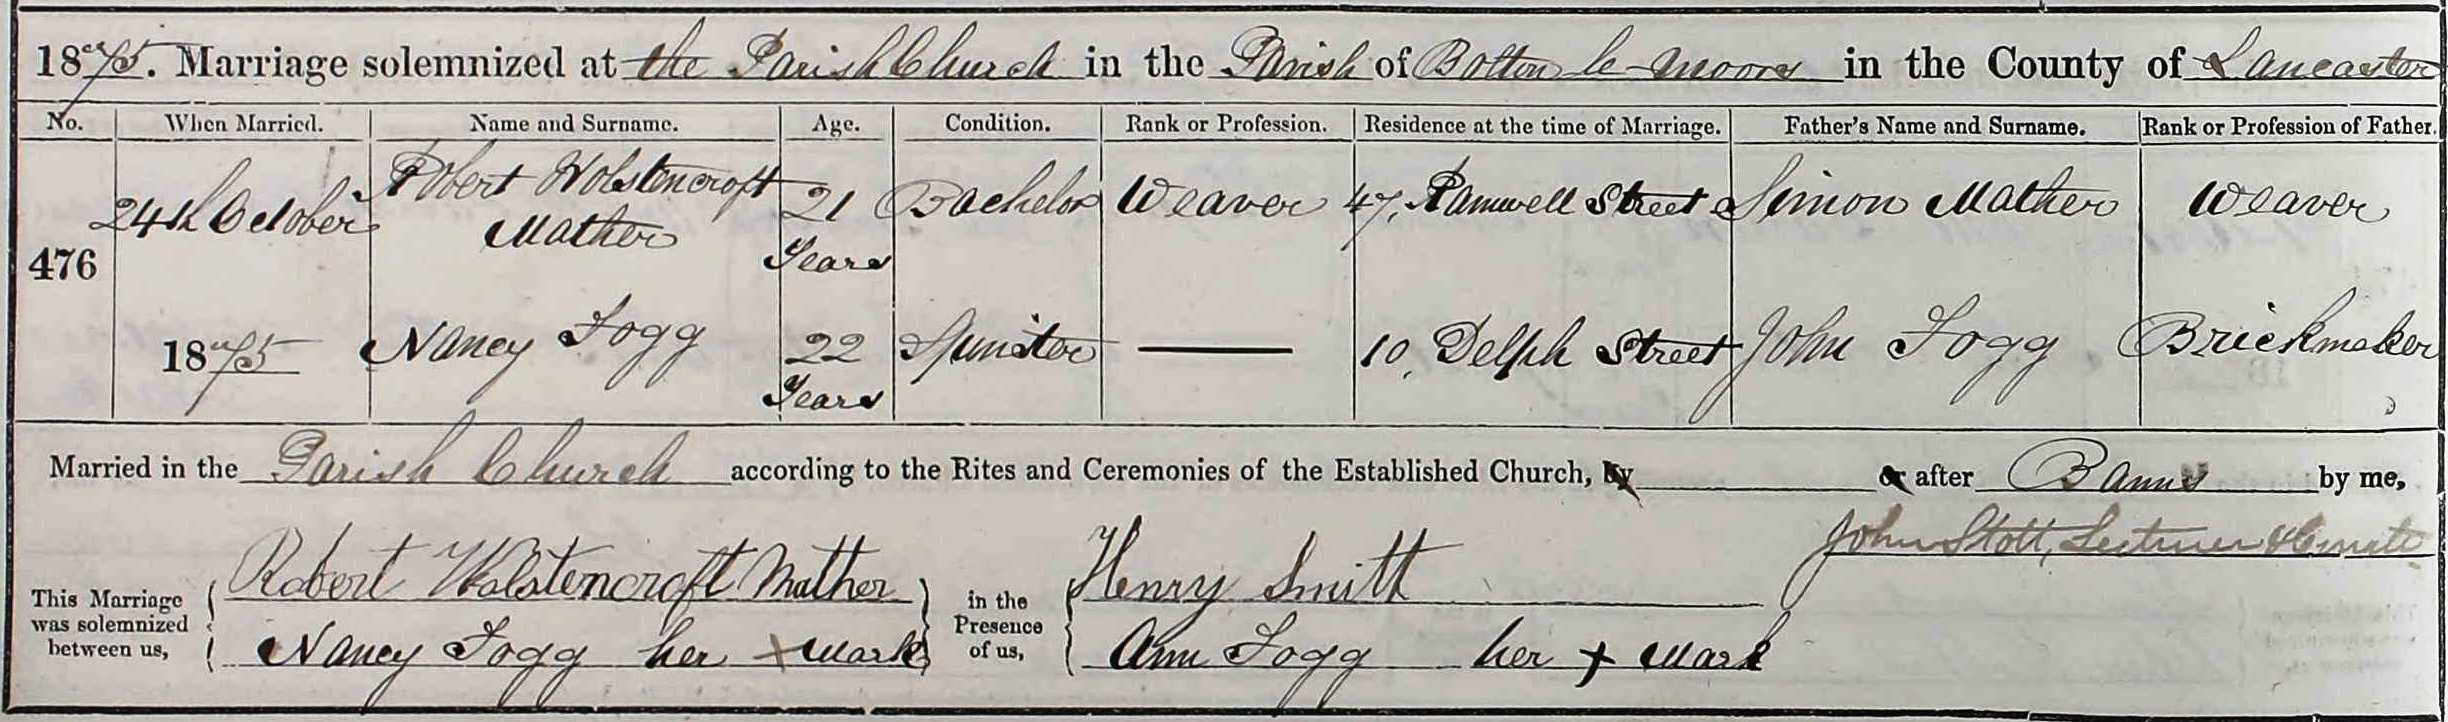 1875. Marriage solemnized at the Parish Church in the Parish of Bolton le Moors in the County of Lancaster
No. When Married. Name and Surname. Age. Condition. Rank or Profession. Residence at the time of Marriage. Father's Name and Surname. Rank or Profession of Father.
476 24th October 1875
Robert Wolstencroft Mather 21 Years Bachelor Weaver 47, Ramwell Street Simon Mather Weaver
Nancy Fogg 22 Years Spinster — 10, Delph Street John Fogg Brickmaker
Married in the Parish Church according to the Rites and Ceremonies of the Established Church, by or after Banns by me,
John Stott, Lecturer & Curate
This Marriage was solemnized between us, Robert Wolstencroft Mather in the Presence of us, Henry Smith
Nancy Fogg her x mark Ann Fogg her x mark